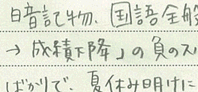 暗記物、国語全般
→ 成績下降」の負のス
ばかりで、夏休み明けに